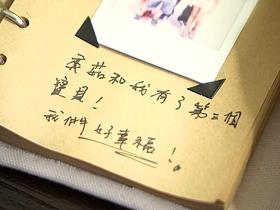 茹和我有了第二個
寶貝！
我們好幸福！